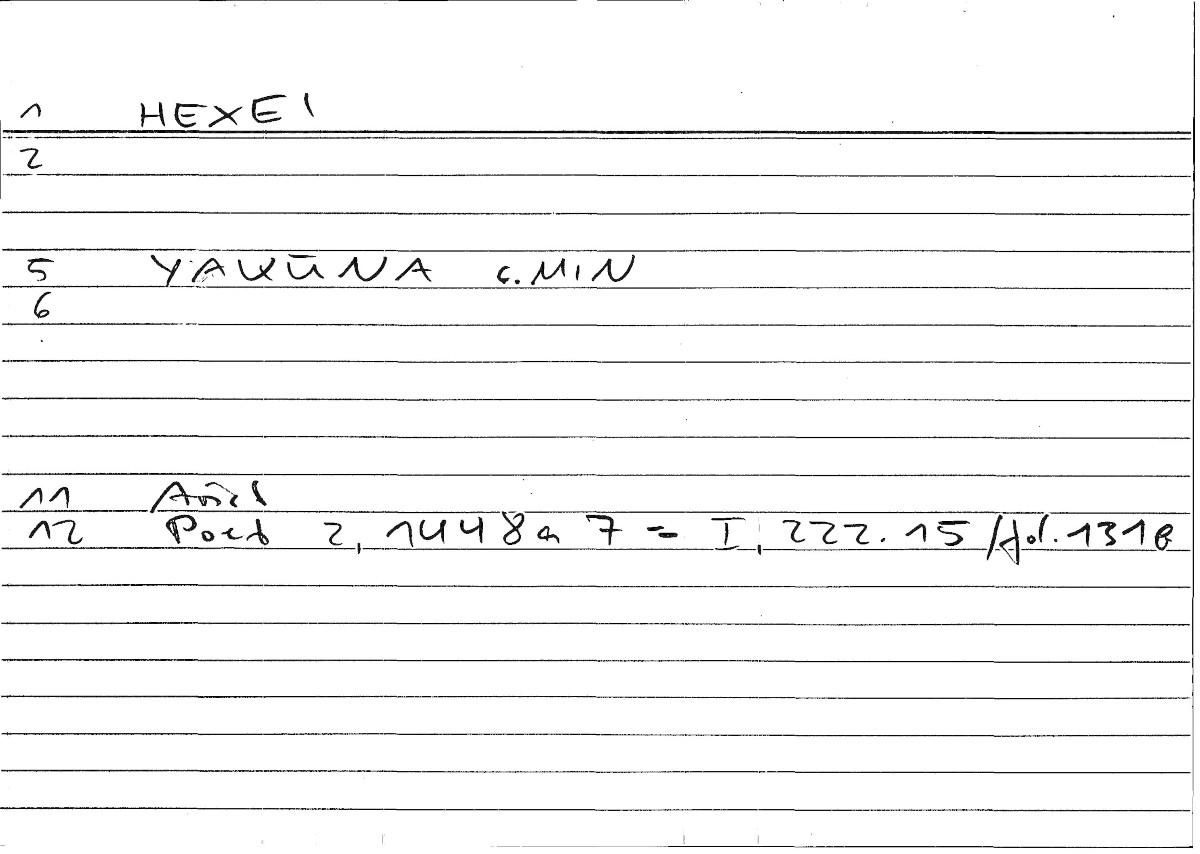 1 HEXEI
2
5 YAKŪNA c. MIN
6
11 Arist
12 Poet 2, 1448a 7 = I, 222.15 / fol. 131b